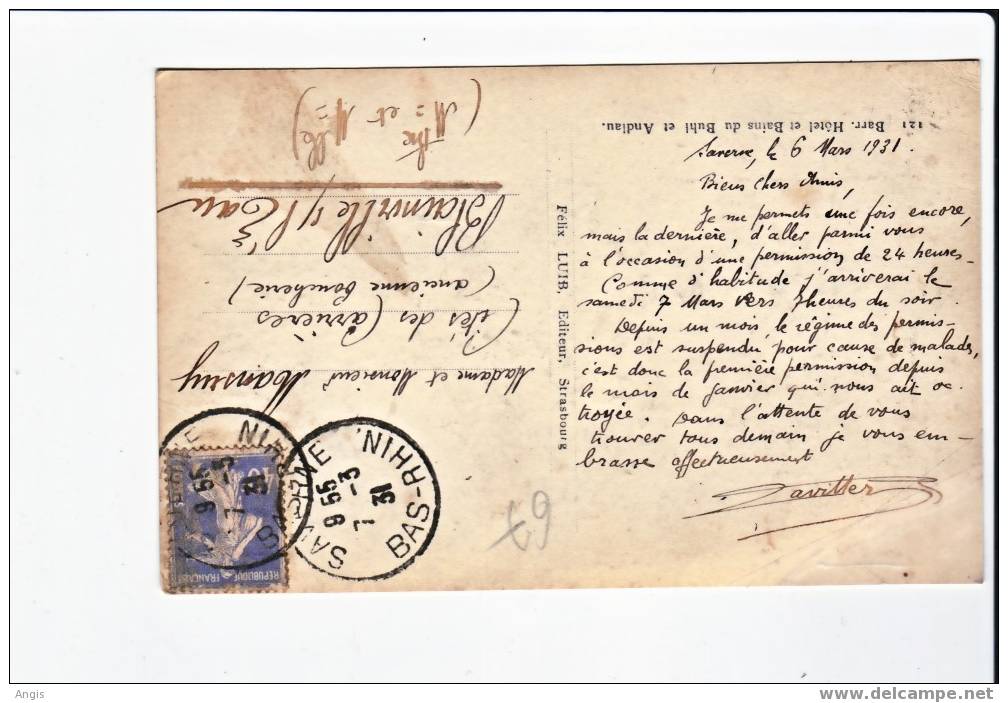 Saverne, le 6 Mars 1931.
Biens chers Amis,
Je me permets une fois encore,
mais la dernière, d'aller parmi vous
à l'occasion d'une permission de 24 heures-
Comme d'habitude j'arriverai le
samedi 7 Mars vers 3 heures du soir.
Depuis un mois, le régime des permis-
sions est suspendu pour cause de malades,
c'est donc la première permission depuis
le mois de Janvier qui nous ait oc
troyée. Dans l'attente de vous
trouver tous demain je vous em-
brasse affectueusement
121 Barr. Hôtel et Bains du Buhl et Andlau.
Félix LUIB, Editeur, Strasbourg
Madame et Monsieur Mansuy
Cités des Carrières
(ancienne boucherie)
Blainville s/ l'Eau
(Mthe et Mlle)
SAVERNE
9 55
7 -3
31
BAS-RHIN
SAVERNE
9 55
7 -3
31
BAS-RHIN
REPUBLIQUE FRANCAISE
Angis
www.delcampe.net